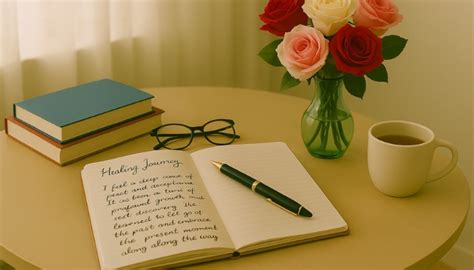 Healing Journey
I feel a deep of
and acceptance
a of
profound growth and
discovery
learned to let go of
the past and embrace
the present moment
along along the way